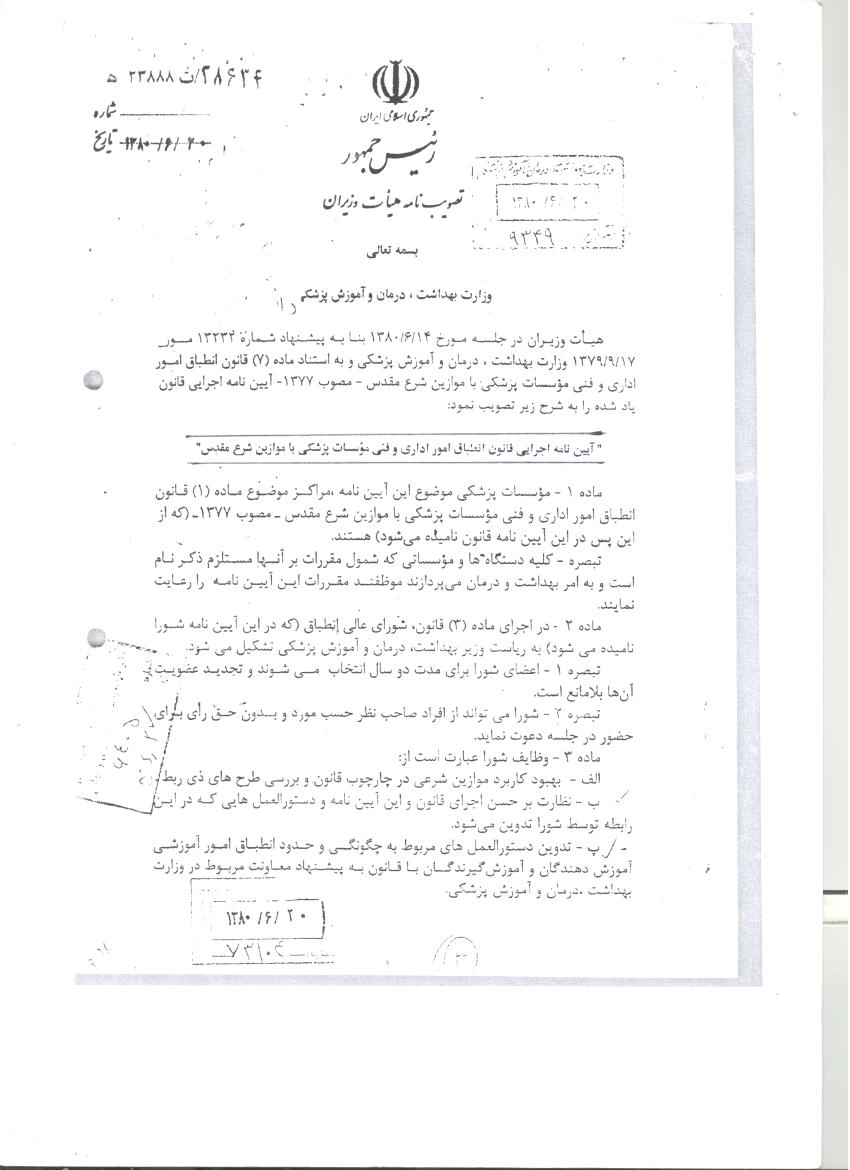 ۲۸۶۳۴/ت ۲۳۸۸۸ ه
شماره
تاریخ ۱۳۸۰/۶/۲۰
جمهوری اسلامی ایران
رئیس جمهور
تصویب نامه هیأت وزیران
۱۳۸۰/۶/۲۰
۹۳۴۹
بسمه تعالی
وزارت بهداشت ، درمان و آموزش پزشکی
هیأت وزیران در جلسه مورخ ۱۳۸۰/۶/۱۴ بنا به پیشنهاد شماره ۱۳۲۳۲ مورخ
۱۳۷۹/۹/۱۷ وزارت بهداشت ، درمان و آموزش پزشکی و به استناد ماده (۷) قانون انطباق امور
اداری و فنی مؤسسات پزشکی با موازین شرع مقدس - مصوب ۱۳۷۷- آیین نامه اجرایی قانون
یاد شده را به شرح زیر تصویب نمود:
" آیین نامه اجرایی قانون انطباق امور اداری و فنی مؤسسات پزشکی با موازین شرع مقدس"
ماده ۱ - مؤسسات پزشکی موضوع این آیین نامه ،مراکز موضوع ماده (۱) قانون
انطباق امور اداری و فنی مؤسسات پزشکی با موازین شرع مقدس ـ مصوب ۱۳۷۷ـ (که از
این پس در این آیین نامه قانون نامیده می‌شود) هستند.
تبصره - کلیه دستگاه‌ها و مؤسساتی که شمول مقررات بر آنها مستلزم ذکر نام
است و به امر بهداشت و درمان می‌پردازند موظفند مقررات این آیین نامه را رعایت
نمایند.
ماده ۲ - در اجرای ماده (۳) قانون، شورای عالی انطباق (که در این آیین نامه شورا
نامیده می شود) به ریاست وزیر بهداشت، درمان و آموزش پزشکی تشکیل می شود.
تبصره ۱ - اعضای شورا برای مدت دو سال انتخاب می شوند و تجدید عضویت
آن‌ها بلامانع است.
تبصره ۲ - شورا می تواند از افراد صاحب نظر حسب مورد و بدون حق رأی برای
حضور در جلسه دعوت نماید.
ماده ۳ - وظایف شورا عبارت است از:
الف - بهبود کاربرد موازین شرعی در چارچوب قانون و بررسی طرح های ذی ربط.
ب - نظارت بر حسن اجرای قانون و این آیین نامه و دستورالعمل هایی که در این
رابطه توسط شورا تدوین می‌شود.
پ - تدوین دستورالعمل های مربوط به چگونگی و حدود انطباق امور آموزشی
آموزش دهندگان و آموزش‌گیرندگان با قانون به پیشنهاد معاونت مربوط در وزارت
بهداشت ،درمان و آموزش پزشکی.
۱۳۸۰/۶/۲۰